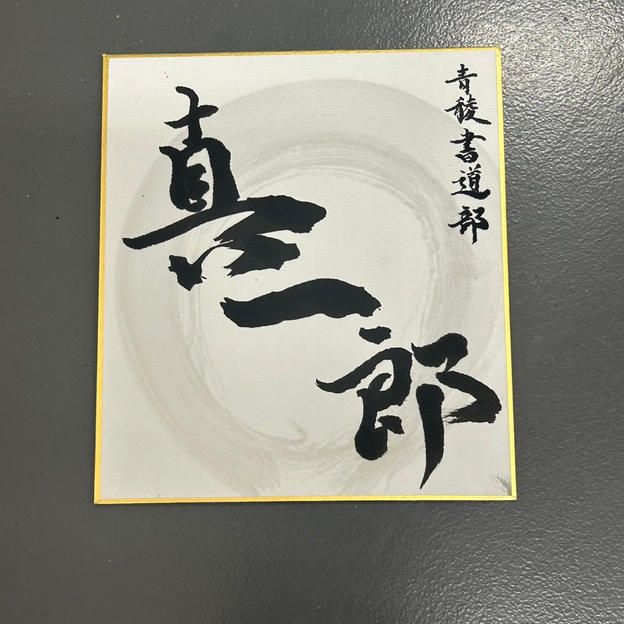 青稜書道部
真一郎